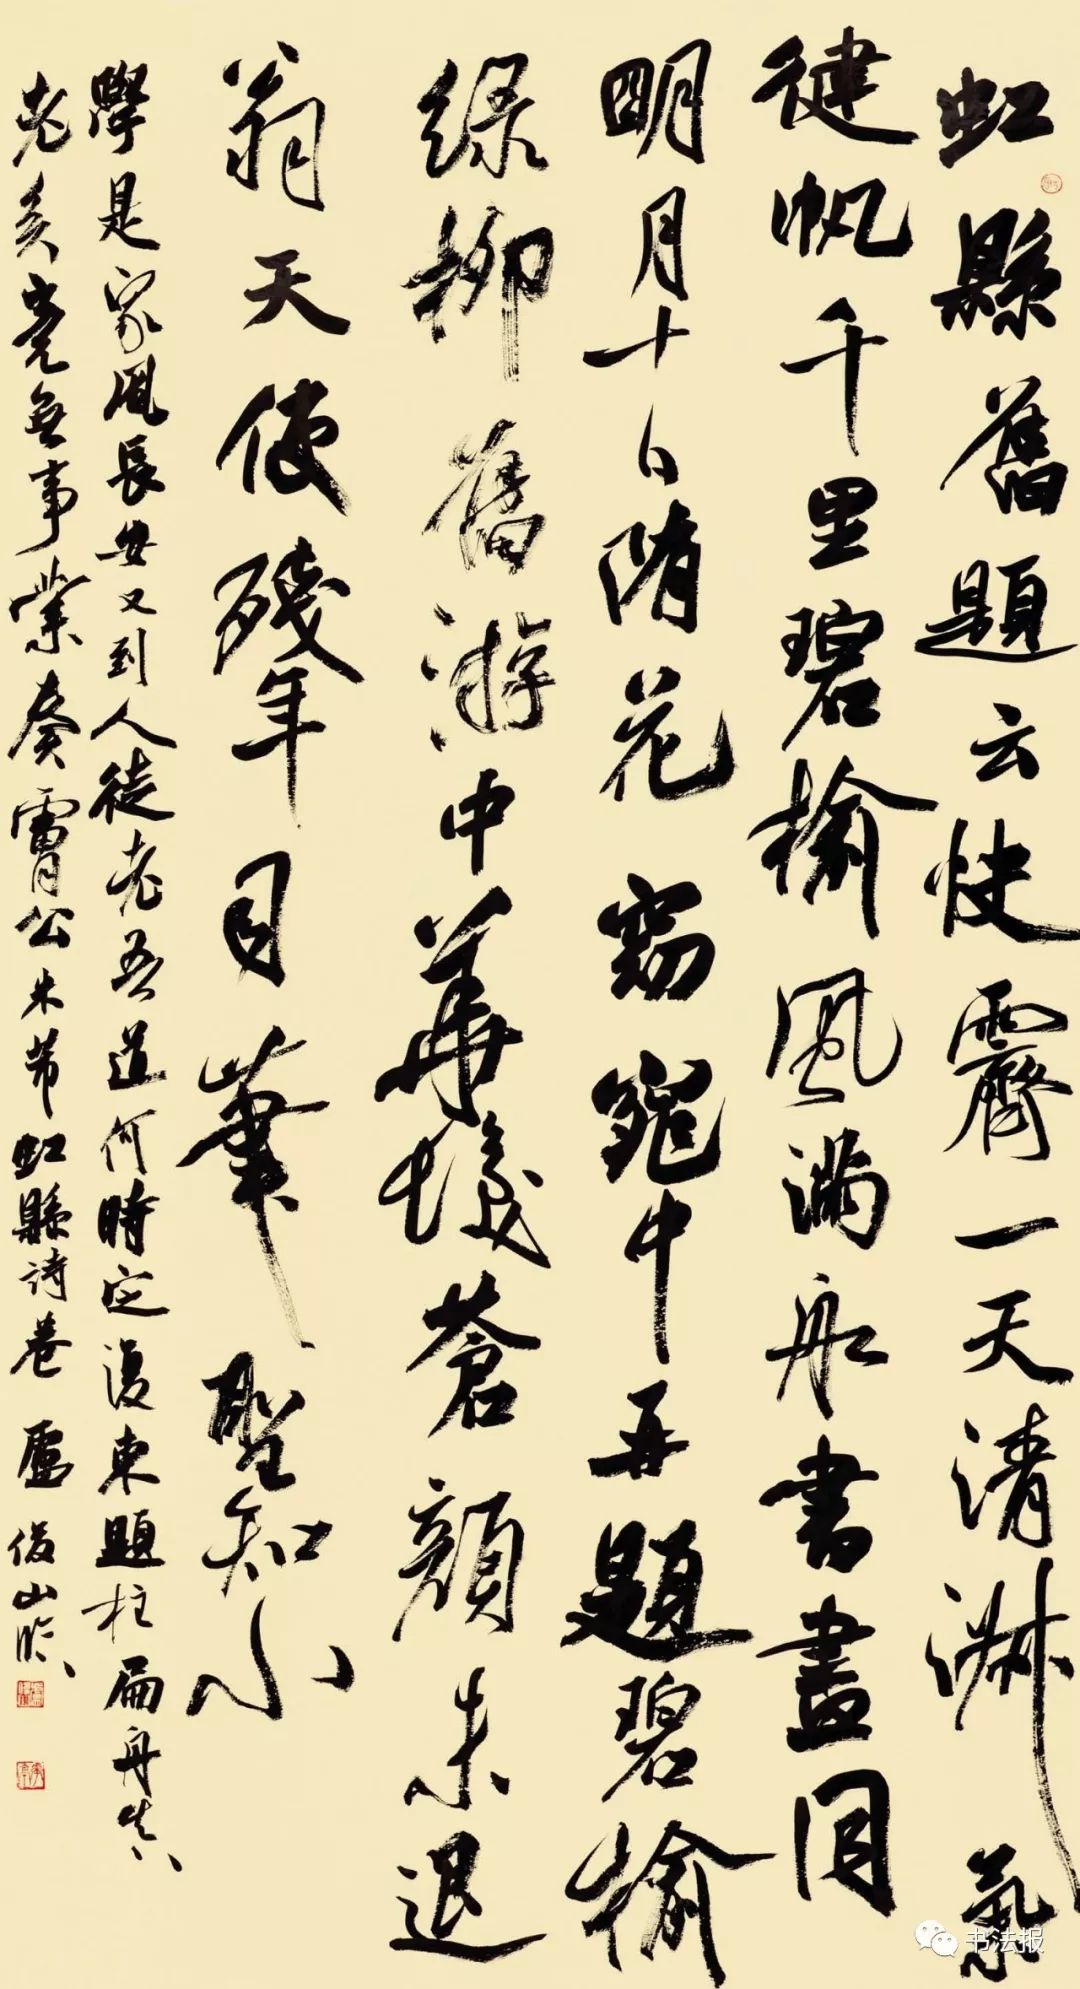 虹縣舊題云快霽一天清淑氣
健帆千里碧榆風滿舟書畫同
明月十日隋花窈窕中再題碧榆
綠柳舊游中華髮蒼顏未退
翁天使殘年司筆聖知小
學是家風長安又到人徒老吾道何時定復東題柱扁舟真
老矣竟無事業奏膚公米芾虹縣詩卷盧俊山臨
书法报